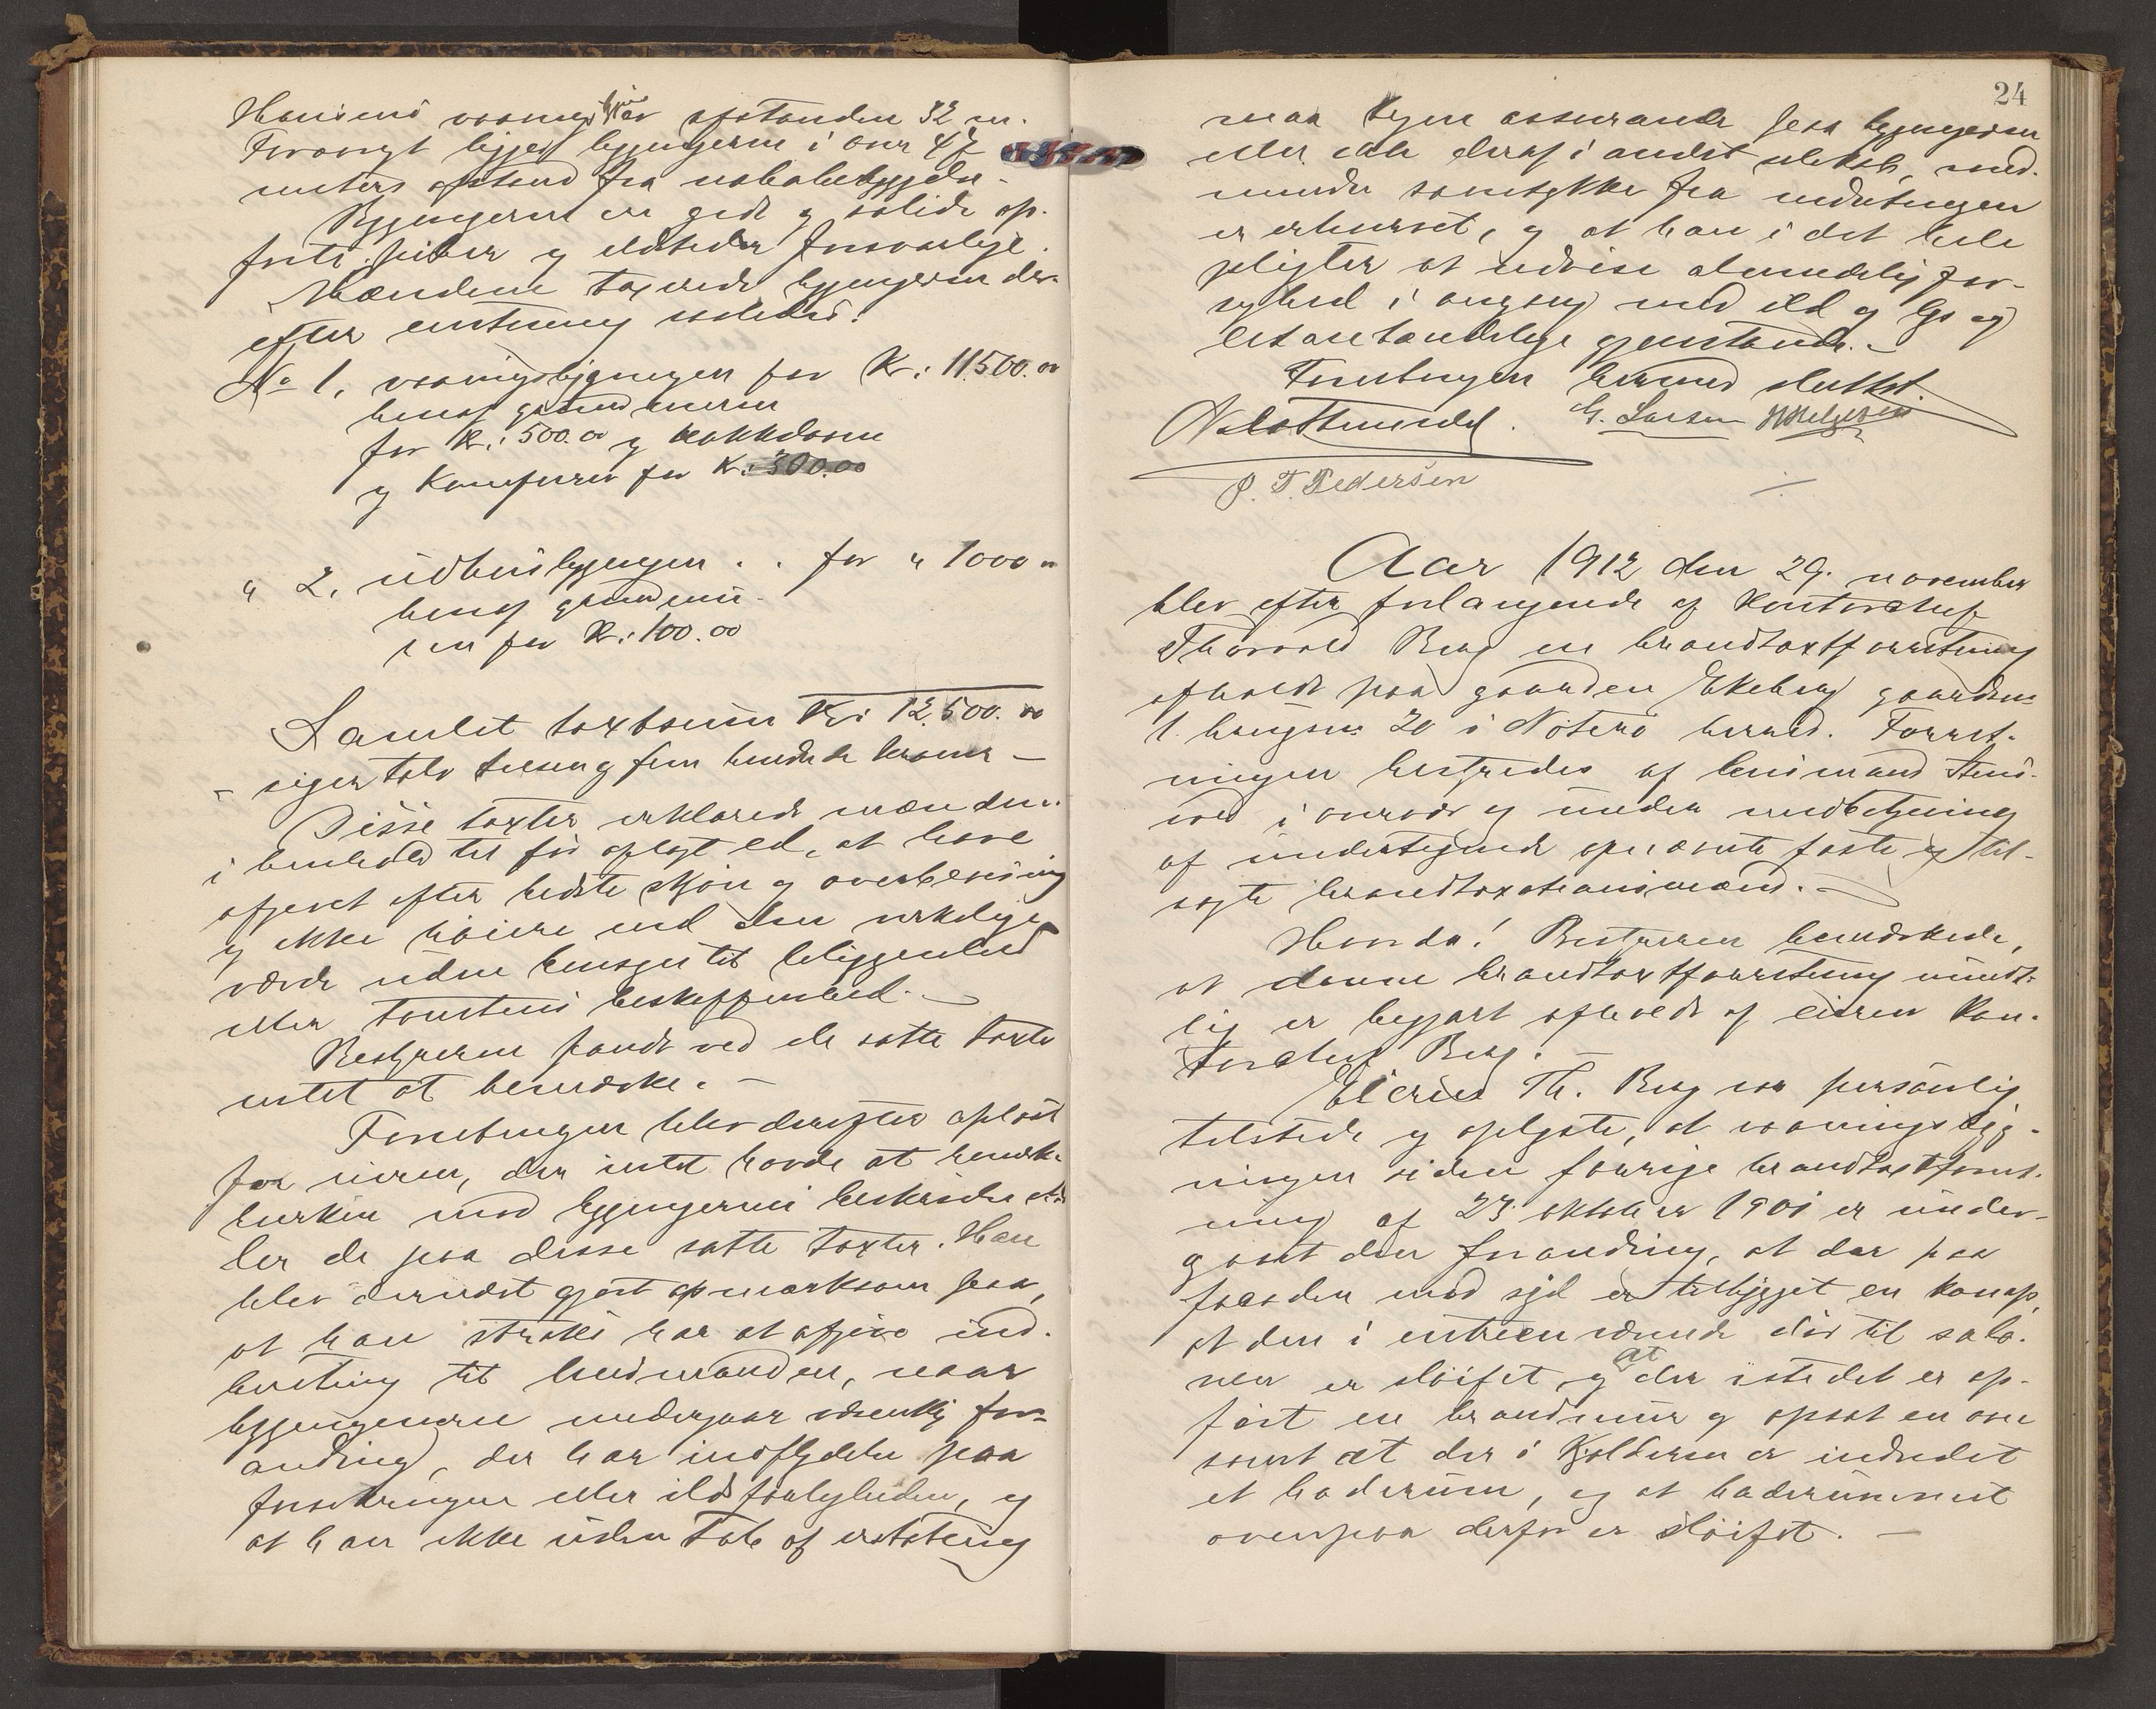 Hansens vaaningshus er afstanden 32 m.
Forøvrigt ligger bygningerne i over 47
meters afstand fra nabobebyggelse.
Bygningerne er godt og solidt op-
førte. Piber og ildsteder forsvarlige.
Mændene taxerede bygningerne der-
efter enstemmig saaledes:
No 1, vaaningsbygningen for Kr: 11500.00
heraf grundmuren
for Kr: 500.00 og kakkelovne
og komfurer for Kr: 300.00
" 2, udhusbygningen . . for " 1000 "
heraf grundmu-
ren for Kr: 100.00
Samlet taxtsum Kr: 12,500.00
- siger tolv tusen og fem hundrede kroner -
Disse taxter erklærede mændene
i henhold til før aflagt ed, at have
afgivet efter bedste skjøn og overbevisning
og ikke høiere end den virkelige
værdi uden hensyn til beliggenhed
eller tomtens beskaffenhed. -
Bestyreren fandt ved de satte taxter
intet at bemærke. -
Forretningen blev derefter oplæst
for eieren, der intet havde at bemærke
hverken mod bygningernes beskrivelse el-
ler de paa disse satte taxter. Han
blev dernæst gjort opmærksom paa,
at han straks har at afgive ind-
beretning til lensmanden, naar
bygningerne undergaar væsentlig for-
andring, der har indflydelse paa
forsikringen eller ildsfarligheden, og
at han ikke uden Tab af erstatning
24
maa tegne assurance paa bygningerne
eller dele deraf i andet selskab, med-
mindre samtykke fra indretningen
er erhvervet, og at han i det hele
pligter at udvise almindelig for-
sighed i omgang med ild og lys og
letantændelige gjenstande. -
Forretningen hermed sluttet.
N. Slottemoldt. G. Larsen H Helgesen
P. T. Pedersen
Aar 1912 den 29. november
blev efter forlangende af Kontorchef
Thorvald Berg en brandtaxtforretning
afholdt paa gaarden Ekeberg gaardsno
1. brugsno 20 i Nøterø herred. Forret-
ningen bestyredes af lensmand Stens-
ved i overvær og under medbetjening
af undertegnede opnævnte faste og til-
sagte brandtaxationsmænd. -
Hvorda! Bestyreren bemærkede,
at denne brandtaxtforretning mundt-
lig er begjært afholdt af eieren Kon-
torchef Berg. -
Eieren Th. Berg var personlig
tilstede og oplyste, at vaaningsbyg-
ningen siden forrige brandtaxtforret-
ning af 23 oktober 1901 er under-
gaaet den forandring, at der paa
facaden mod syd er tilbygget en karnap,
at den i entreen værende dør til salo-
nen er sløifet og at der istedet er op-
ført en brandmur og opsat en ovn
samt at der i Kjelderen er indredet
et baderum, og at baderummet
ovenpaa derfor er sløifet. -